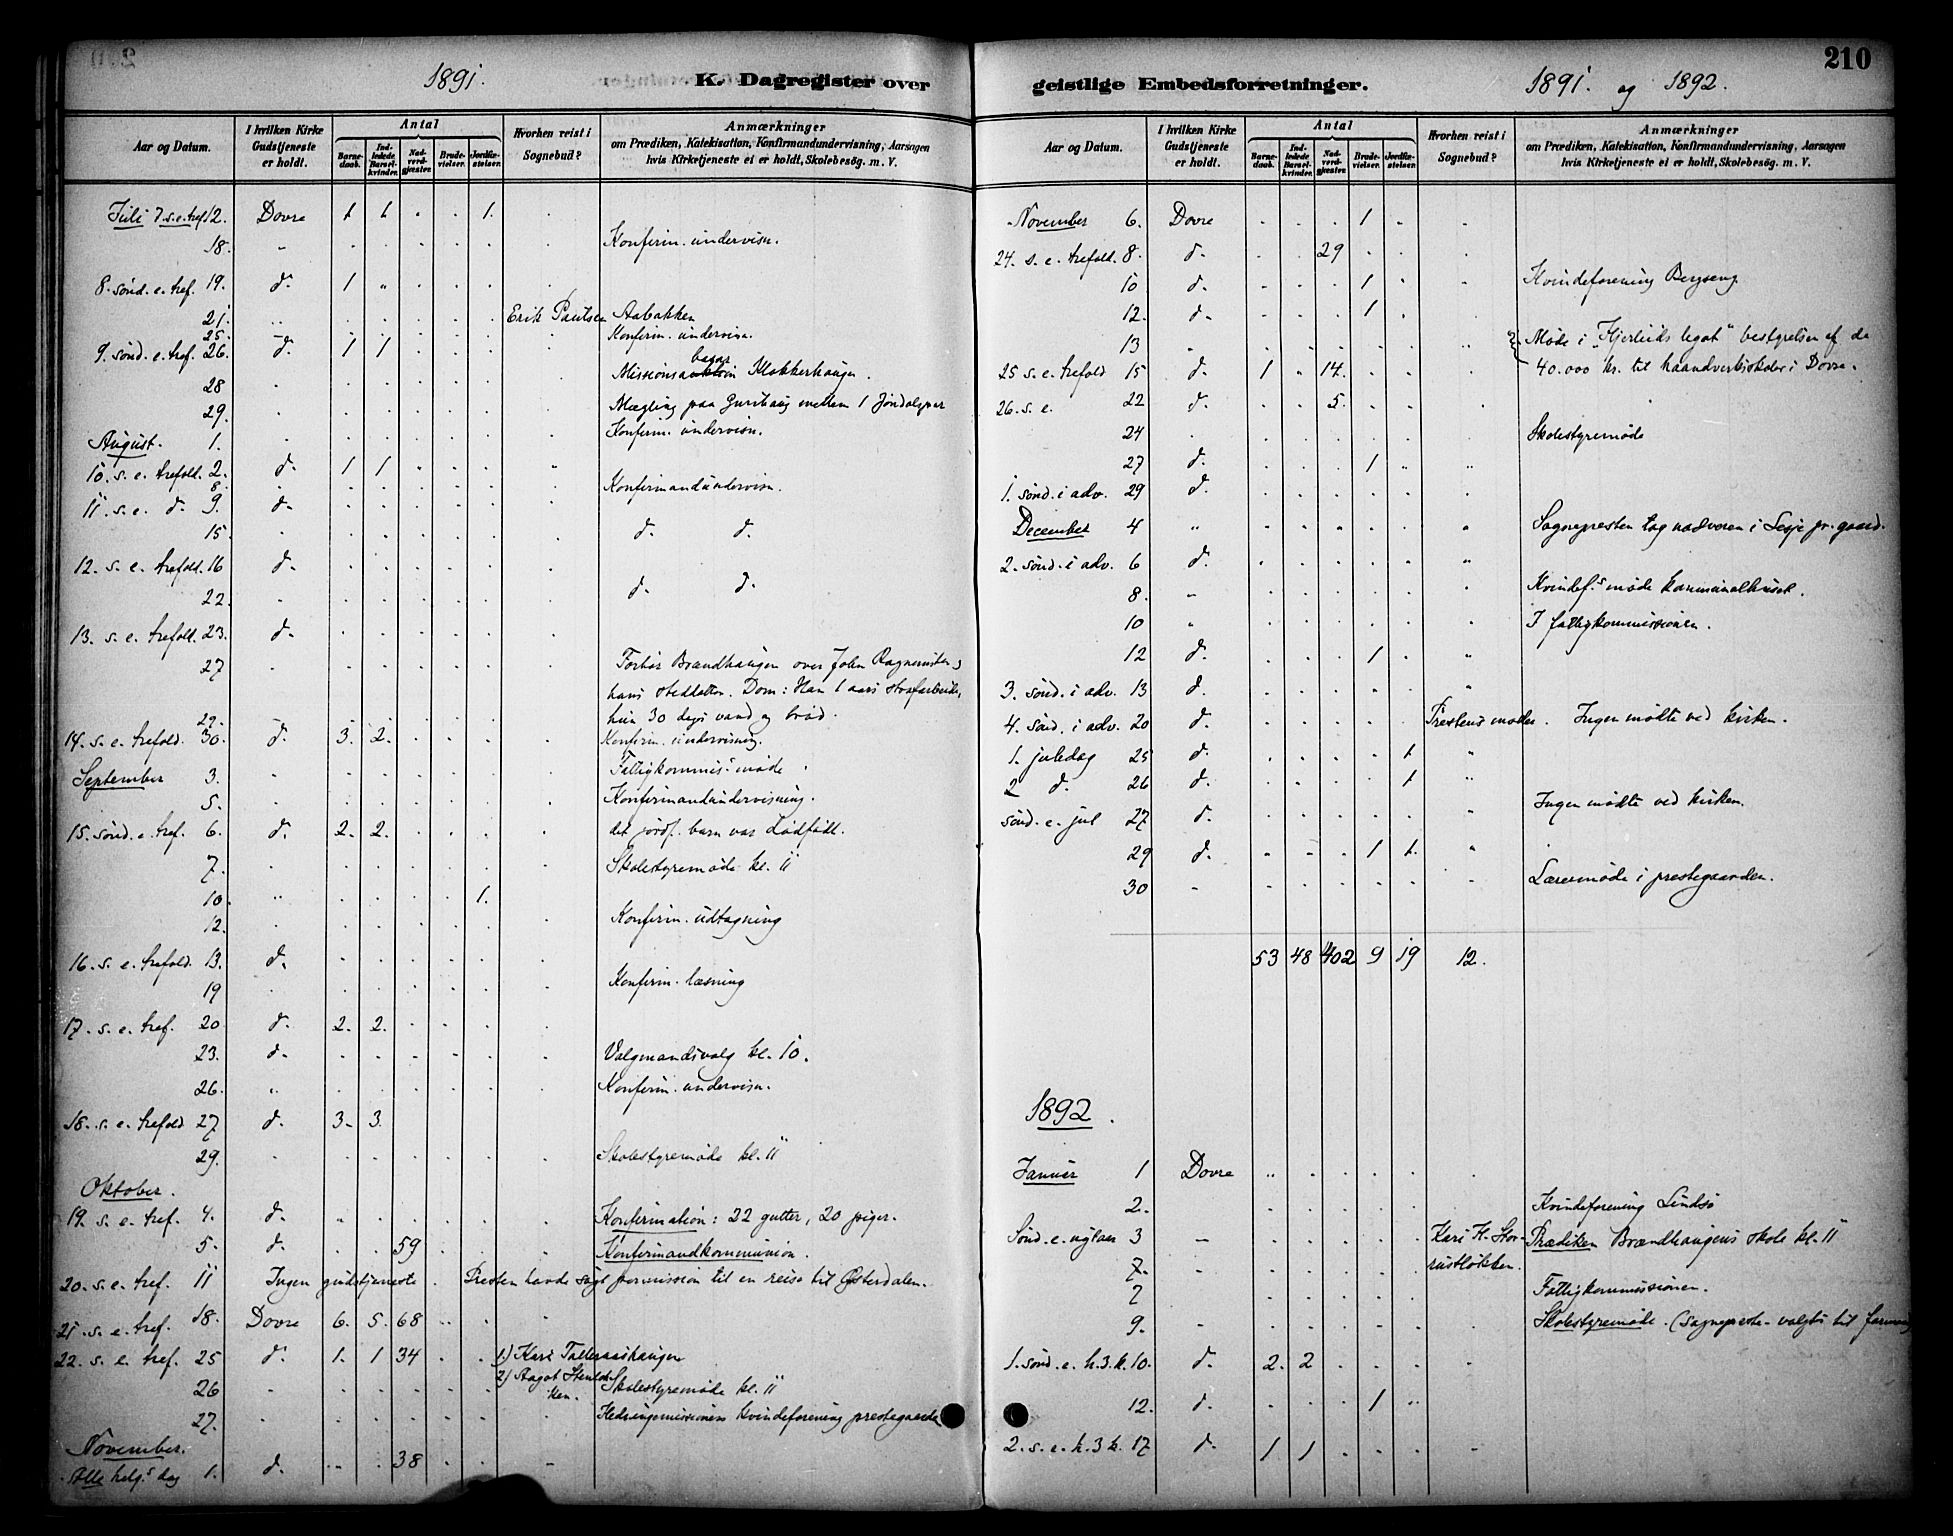 210
1891.
K. Dagregister over
geistlige Embedsforretninger.
1891. og 1892.
Aar og Datum.
I hvilken Kirke Gudstjeneste er holdt.
Antal
Barnedaab.
Indledede Barselkvinder.
Nadverdgjæster.
Brudevielser.
Jordfæstelser.
Hvorhen reist i Sognebud?
Anmærkninger
om Prædiken, Katekisation, Konfirmandundervisning, Aarsagen
hvis Kirketjeneste ei er holdt, Skolebesög. m. V.
Juli 7 s. e. tref. 12. Dovre 1 1 . . 1. .
18. Konfirm. undervisn.
8. sönd. e. tref. 19. d. 1
21. Erik Paulsen Aabakken
25. Konfirm. undervisn.
9. sönd. e. tref. 26. d. 1 1
28 Missions basar Klokkerhaugen.
29. Mægling paa
August. 1. Konfirm. undervisn.
10. s. e. trefold. 2. d. 1 1
8. Konfirmandundervisn.
11. s. e. d. 9. d.
15. d. d.
12. s. e. trefold. 16 d.
22. d. d.
13. s. e. trefold. 23. d.
27 Forhör Brandhaugen over John
Dom: Han 1 aars strafarbeide,
hun 30 dags vand og bröd.
29. Konfirm. undervisning.
14. s. e. trefold. 30. d. 3. 2.
September 3. Fattigkommis.s möde.
5. Konfirmandundervisning.
15. sönd. e. tref. 6. d. 2. 2. det jordf. barn var dödfödt.
7. Skolestyremöde kl. 11
10. 1.
12. Konfirm. udtagning
16. s. e. trefold. 13. d.
19 Konfirm. læsning
17. s. e. tref. 20 d. 2. 2.
23. d. Valgmandsvalg kl. 10.
26. Konfirm. undervisn.
18. s. e. trefold 27 d. 3. 3.
29. Skolestyremöde kl. 11
Oktober.
19. s. e. tref. 4. d. Konfirmation: 22 gutter, 20 piger.
5. d. 59 Konfirmandkommunion.
20. s. e. tref. 11 Ingen gudstjeneste. Presten havde sögt permission til en reise til Österdalen.
21. s. e. tref. 18. Dovre 6. 5. 68
22. s. e. tref. 25 d. 1. 1 34 1) Kari Talleraashaugen
2) Aagot
26 Skolestyremöde kl. 11
27. Hedningemissionens kvindeforening prestegaarden
November.
Alle helg.s dag 1. d. 38
Aar og Datum.
I hvilken Kirke Gudstjeneste er holdt.
Antal
Barnedaab.
Indledede Barselkvinder.
Nadverdgjæster.
Brudevielser.
Jordfæstelser.
Hvorhen reist i Sognebud?
Anmærkninger
om Prædiken, Katekisation, Konfirmandundervisning, Aarsagen
hvis Kirketjeneste ei er holdt, Skolebesög. m. V.
November 6. Dovre 1
24. s. e. trefold. 8. d. 29
10 d. 1 Kvindeforening Bergseng
12. d. 1
13 Möde i "Hjerleids legat" bestyrelsen af de
40.000 kr. til haandverksskoler i Dovre.
25 s. e. trefold 15 d. 1 14.
26. s. e. 22 d. 5.
24 Skolestyremöde
27 d. 1
1. sönd. i adv. 29 d.
December 4 Sognepresten tog nadveren i Lesje pr. gaard.
2. sönd. i adv. 6 d.
8. Kvindef.s möde
10 I fattigkommissionen.
12 d. 1
3. sönd. i adv. 13 d.
4. sönd. i adv. 20 d. Prestens moder. Ingen mödte ved kirken.
1. juledag 25 d. 1
2 d. 26 d. 1
sönd. e. jul 27 d. Ingen mödte ved kirken.
29 d. 1 1.
30 Lærermöde i prestegaarden.
53 48 402 9 19 12.
1892.
Januar 1 Dovre
2. Kvindeforening Lindsö
Sönd. e. nytaar 3 Kari H. Storrustlökken. Prædiken Brændhaugens skole kl. 11
7.
7 Fattigkommissionen.
9. Skolestyremöde. (Sognepresten valgts til formand
1. sönd. e. h. 3. k. 10. d. 2. 2
12. d. 1
2. s. e. h. 3 k. 17 d. 1 1